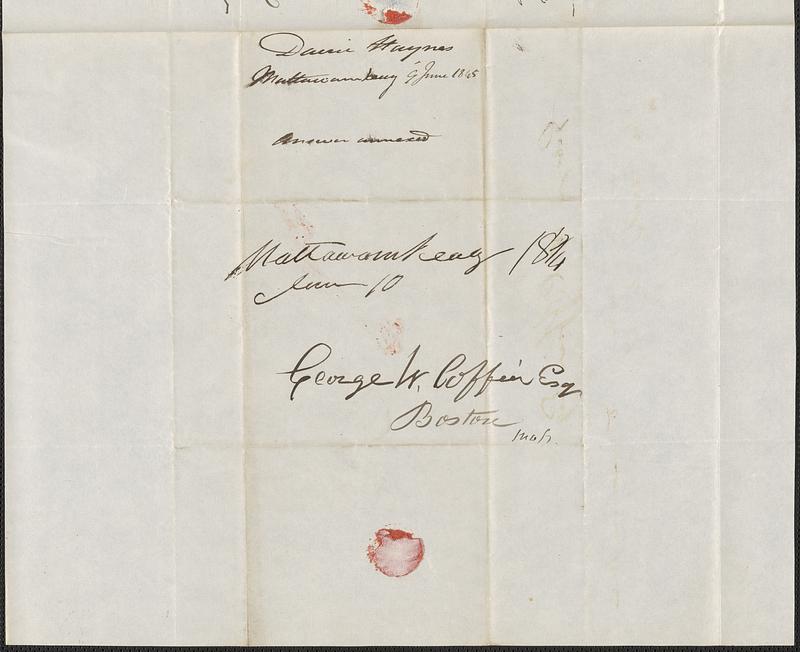 Haynes
Mattawamkeag 9 June 1845
Answer annexed
Mattawamkeag 18¾
June 10
George W. Coffin Esq
Boston
Mass.